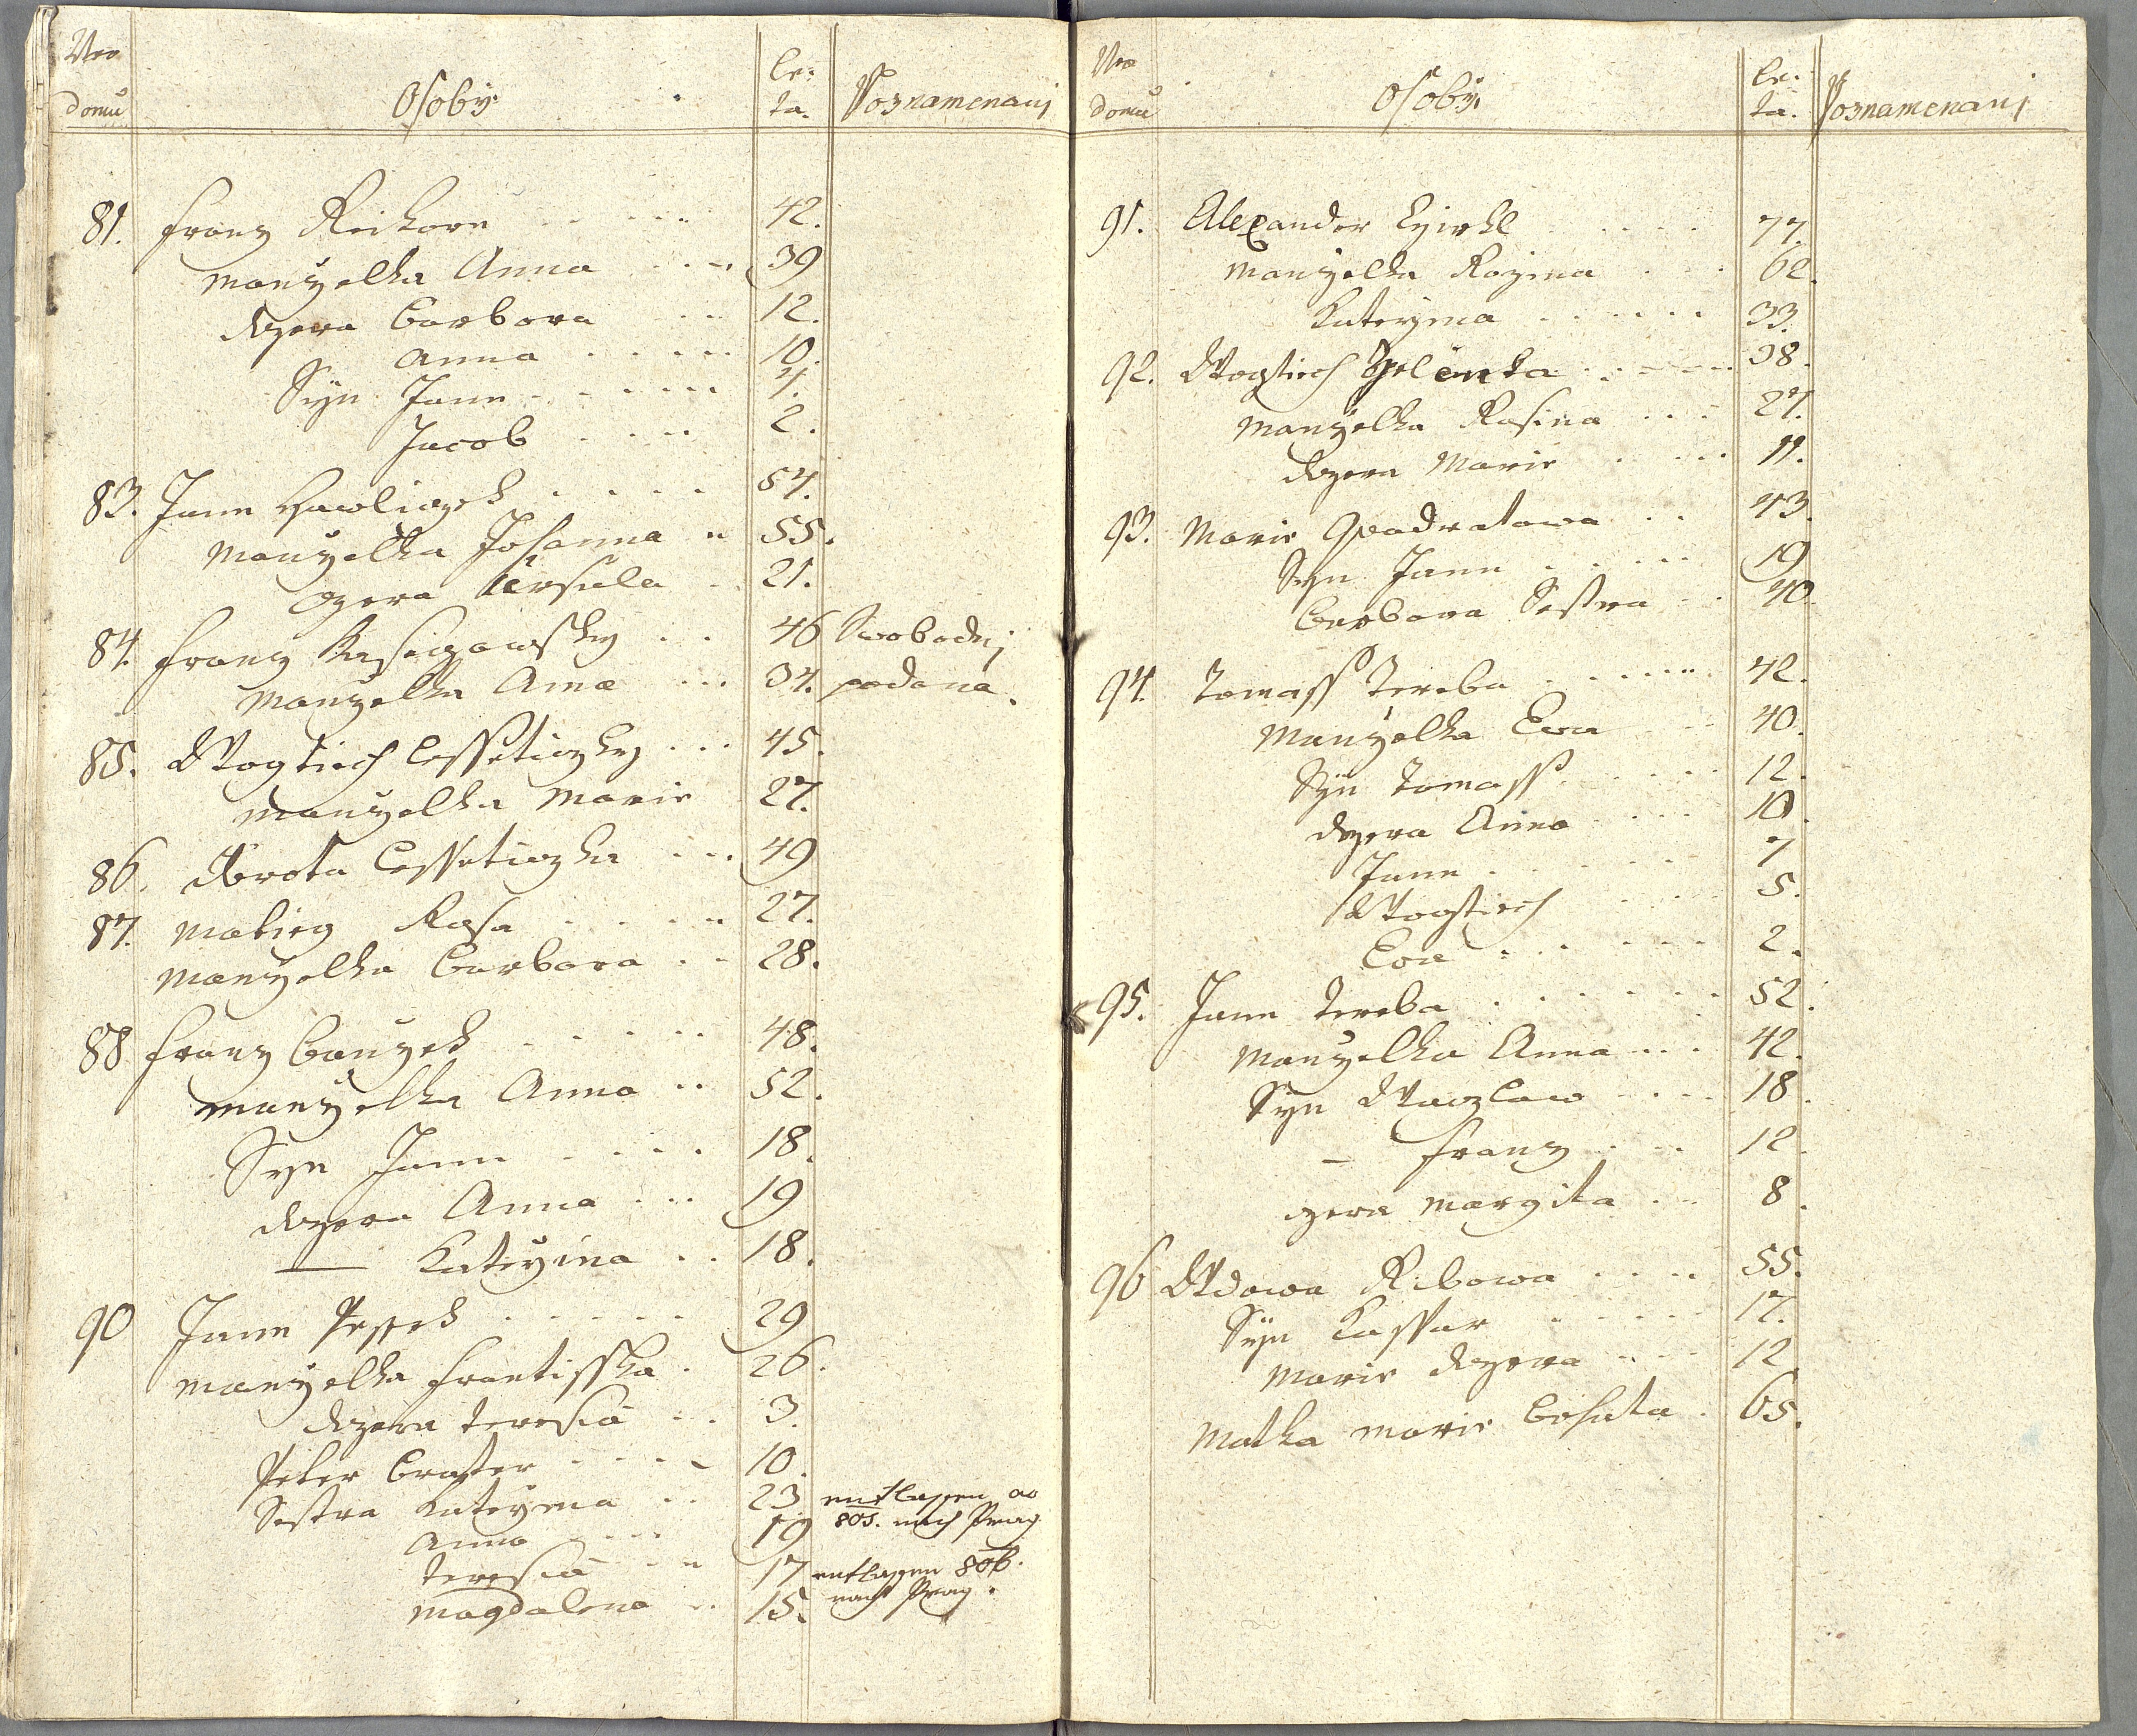 Nro domu
Osoby
le: ta.
Poznamenanj
81. Franz Reithorn 42.
manzelka Anna 39
dczera Barbora 12.
Anna 10.
Syn Jann 4.
Jacob 2.
83. Jann Hawliczek 54.
Manzelka Johanna 55.
czera Ursula 21.
84. Franz 46 Swobodnj
Manzelka Anna 34. podana.
85. Wogtiech Cesseticzky 45.
manzelka Marie 27.
86. Dorota Cesseticzka 49
87. Matieg Rosa 27.
Manzelka Barbora 28.
88 Franz 48.
manzelka Anna 52.
Syn Jann 18.
dczera Anna 19
— Kateyina 18.
90 Jann Pessek 29
manzelka Frantisska 26.
dczera Teresia 3.
Peter Bratter 10.
Sestra Kateyina 23 entlassen ao
Anna 19 805. nach Prag
Teresia 17 entlassen 806.
Magdalena 15. nach Prag.
Nro domu
Osoby.
le: ta.
Poznamenanj
91. Alexander 77.
Manzelka Rozina 62.
Kateyina 33.
92. Wogtiech Zelenka 38.
Manzelka Rosina 27.
dczera Marie 11.
93. Marie Quadratowa 43.
Syn Jann 19
Barbora Sestra 40.
94. Tomass Tereba 42.
Manzelka Ewa 40.
Syn Tomass 12.
dczera Anna 10.
Jann 7
Wogtiech 5.
Ewa 2.
95. Jann Tereba 52.
Manzelka Anna 42.
Syn Waczlaw 18.
— Franz 12.
czera Margita 8.
96 Wdowa Ribowa 55.
Syn Kasspar 17.
Marie dczera 12
Matka Marie 65.